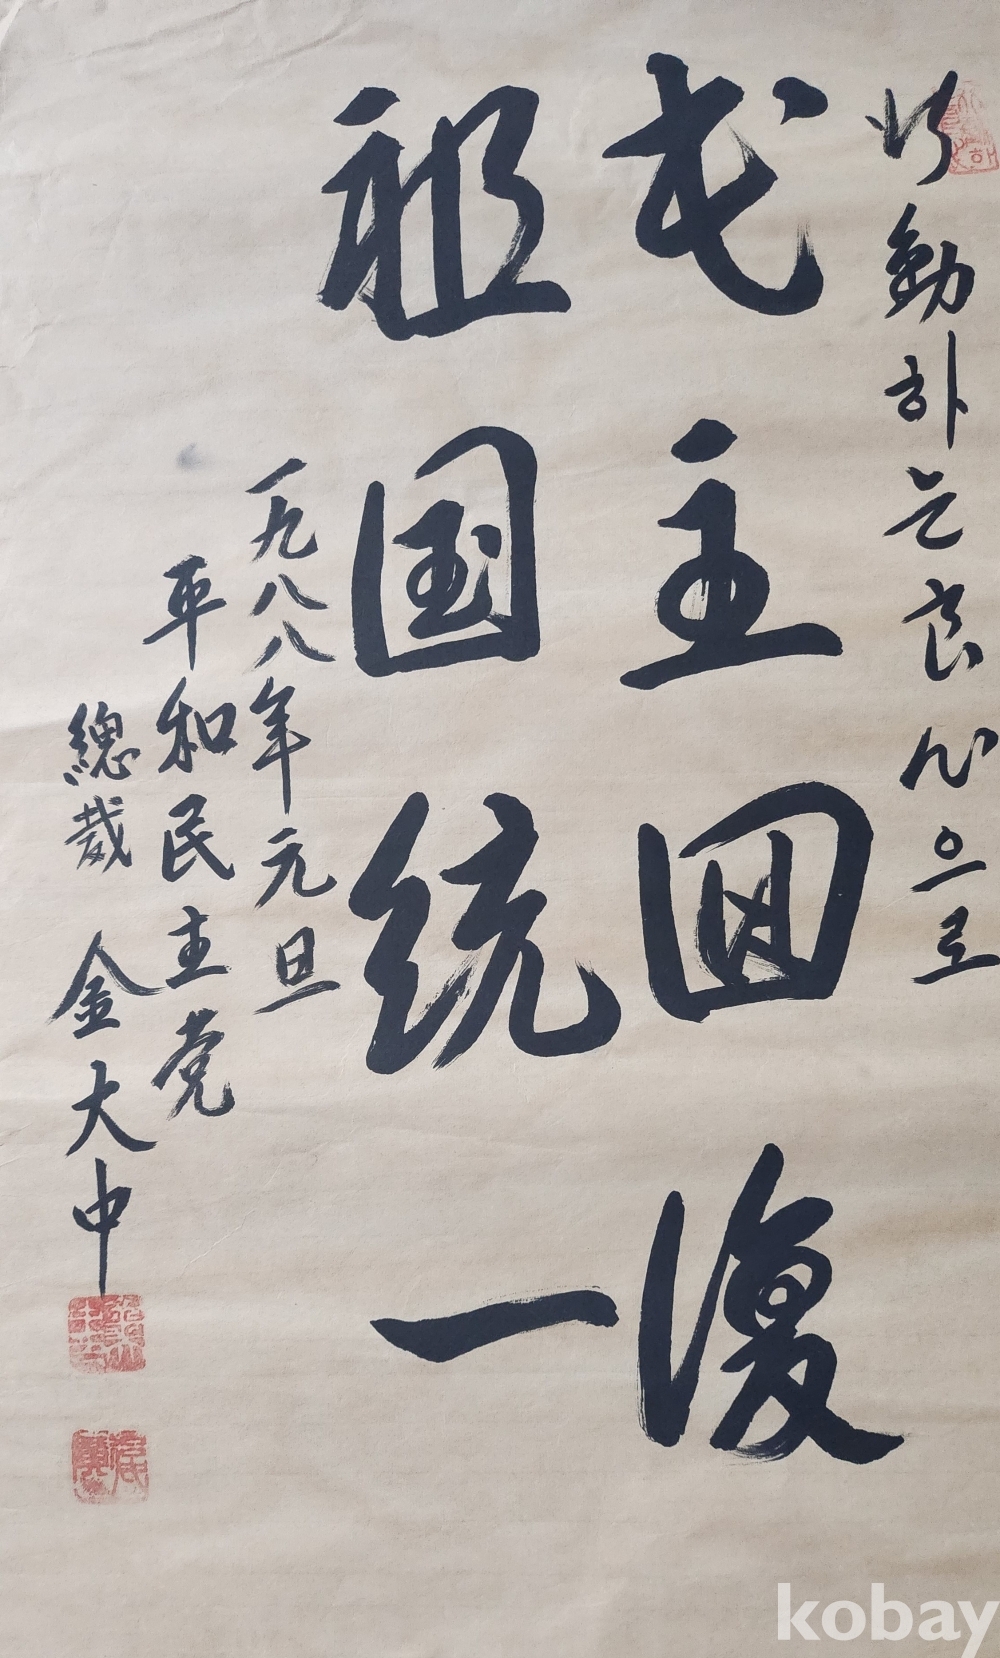 行動하는良心으로
民主回復
祖国統一
一九八八年元旦
平和民主党
總裁 金大中
kobay